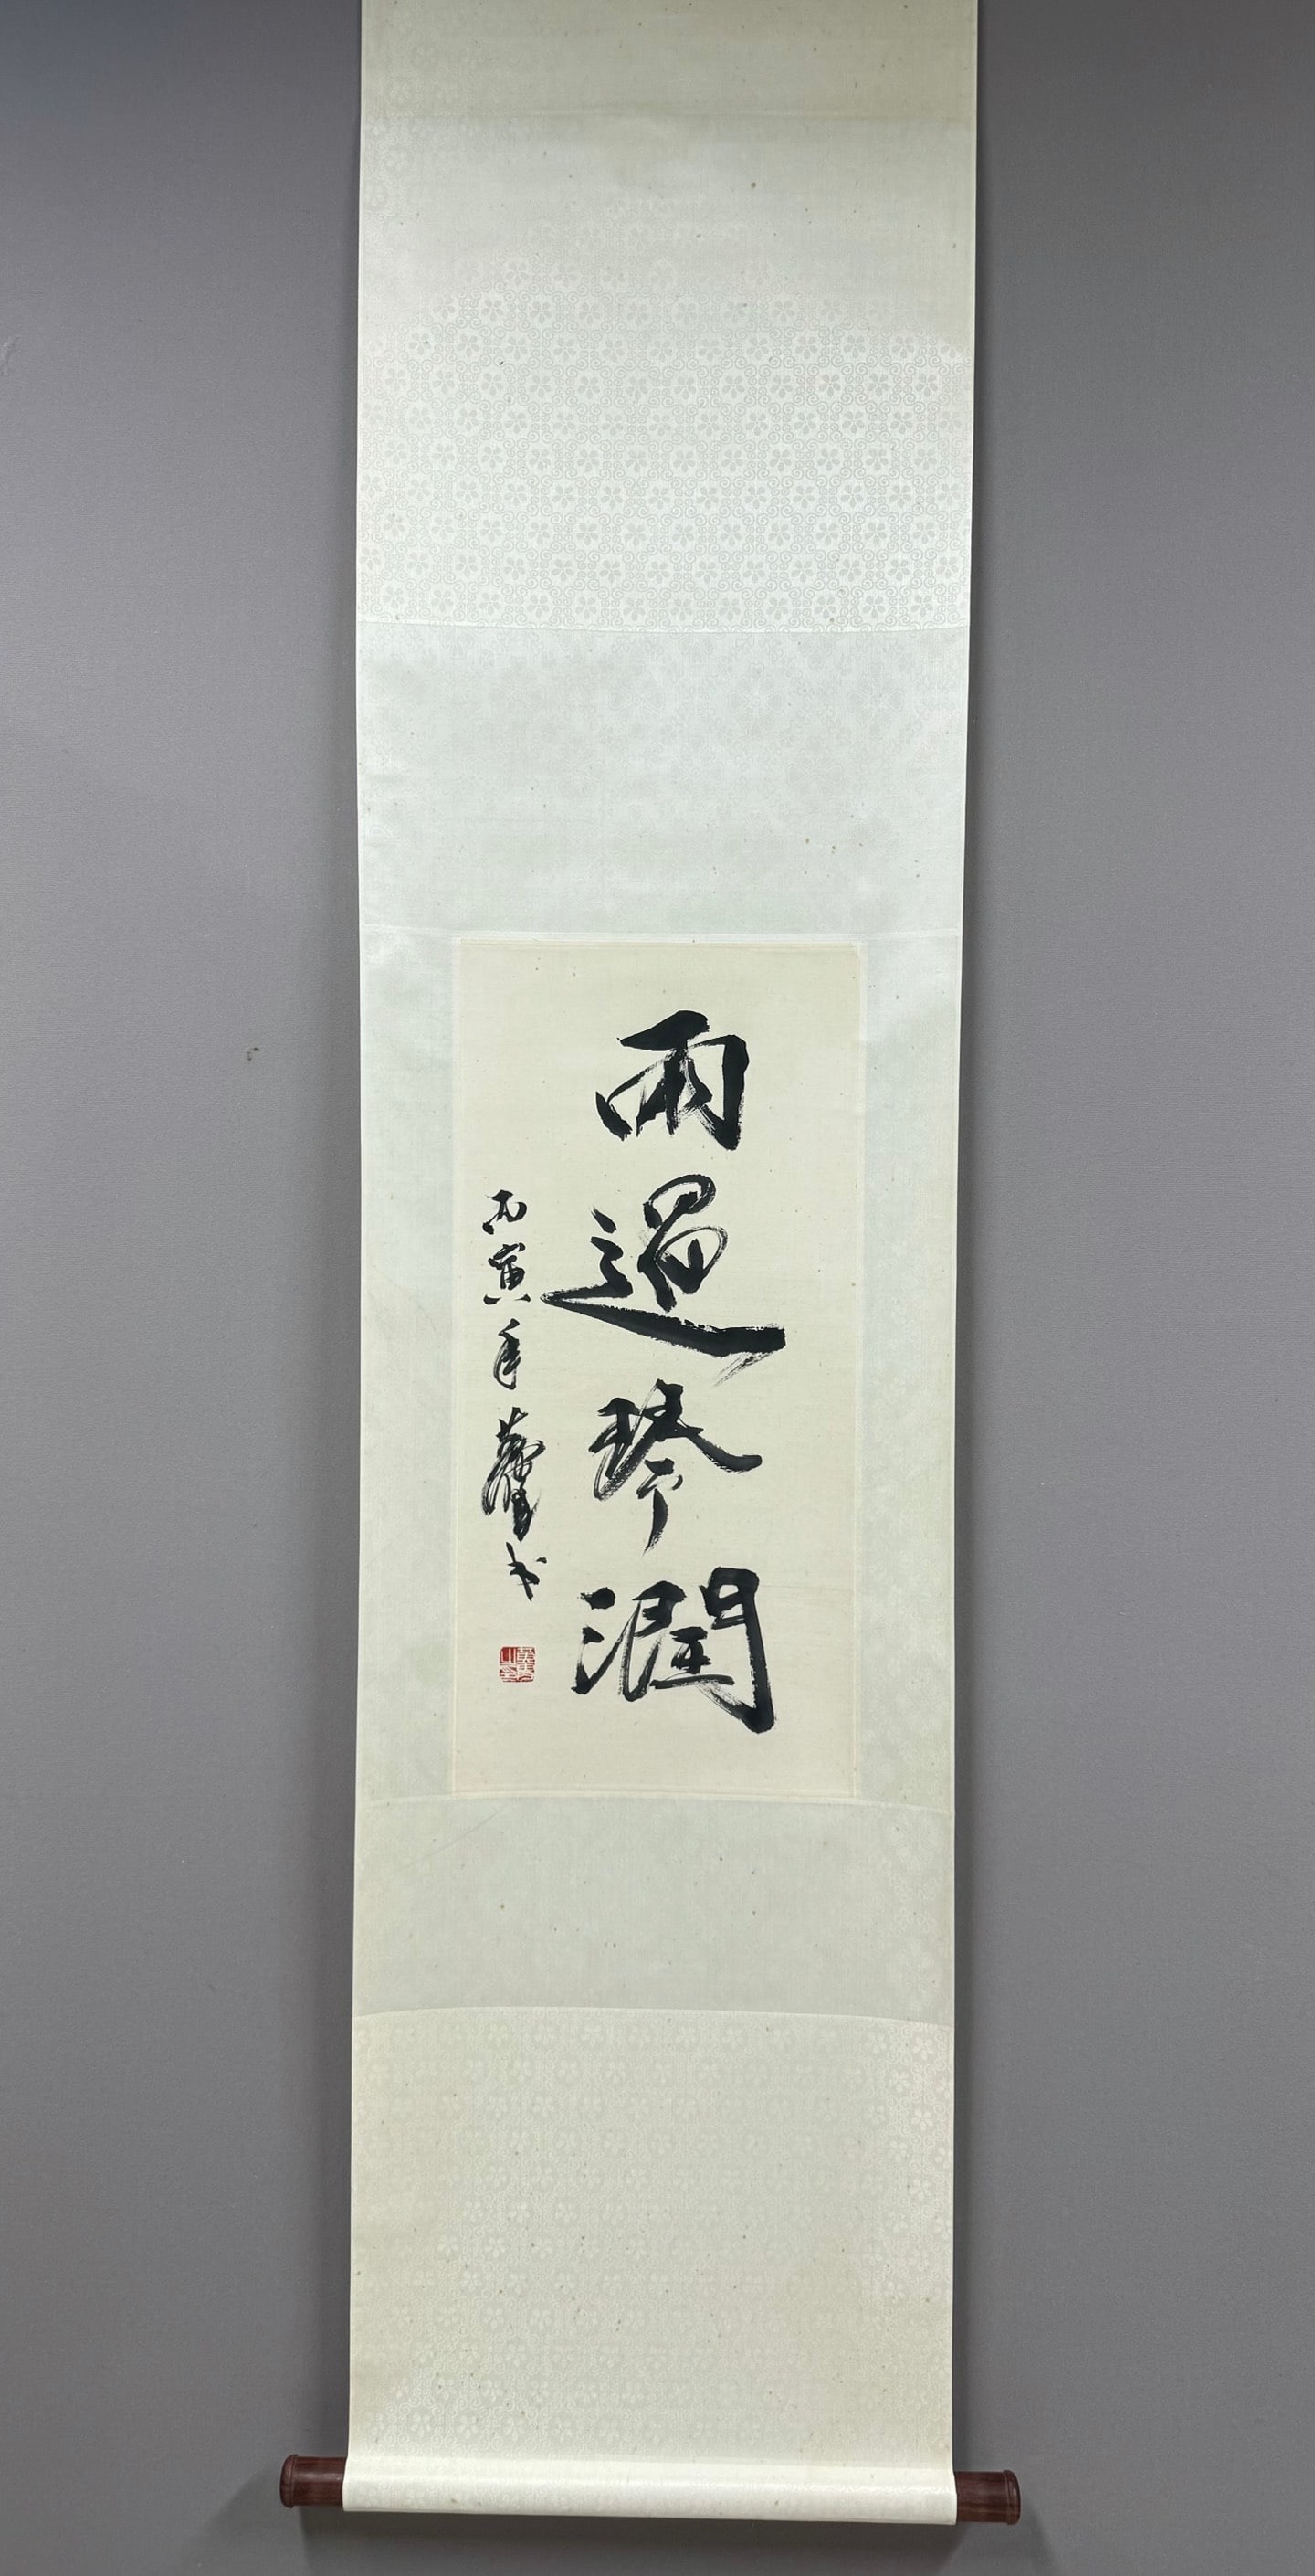 雨過琴潤
丙寅年
書